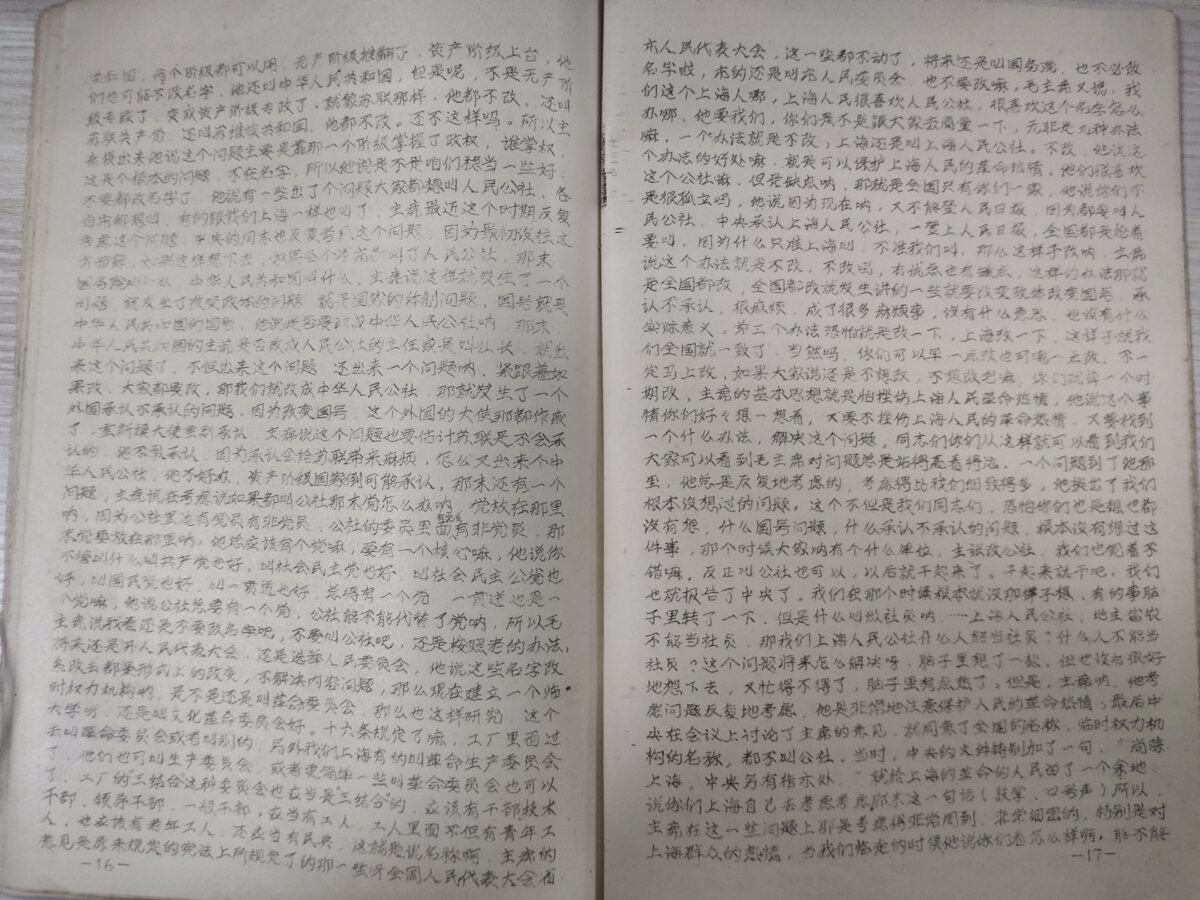 共和国，两个阶级都可以用，无产阶级推翻了，资产阶级上台，他
们也可能不改名字，他还叫中华人民共和国，但是呢，不是无产阶
级专政了，变成资产阶级专政了，就像苏联那样，他都不改，还叫
苏联共产党，还叫苏维埃共和国，他都不改。还不这样吗。所以主
席提出来他说这个问题主要是靠那一个阶级掌握了政权，谁掌权，
这是个根本的问题 不在名字，所以他说是不是咱们稳当一些好，
不要都改名字了 他说有一些出了个问题大家都想叫人民公社，各
自 都想叫，有的跟我们上海一样也叫了，主席最近这个时期反复
考虑这个问题，中央的同志也反复考虑这个问题，因为最初没往这
方面想，如果这样想下去，如果各个 都叫了人民公社，那末
国务院 ，中华人民共和国叫什么，主席说这样就发生了一个
问题，就发生了改变政体的问题 就是国家的体制问题，国号就是
中华人民共和国的国号，他说是否要改成中华人民公社呐，那末，
中华人民共和国的主席是否改成人民公社的主任或是叫社长，就出
来这个问题了，不但出来这个问题，还出来一个问题呐，紧跟着如
果改，大家都要改，那我们就改成中华人民公社 那就发生了一个
外国承认不承认的问题，因为改变国号，这个外国的大使那都作废
了，重新换大使重新承认，主席说这个问题也要估计苏联是不会承
认的，他不敢承认，因为承认会给苏联带来麻烦，怎么又出来个中
华人民公社，他不好办，资产阶级国家倒可能承认，那末还有一个
问题，主席说在考虑说如果都叫公社那末党怎么办呐，党放在那里
呐，因为公社里边有党员有非党员，公社的委员里面有党员有非党员，那
末党要放在那里呐，他总应该有个党嘛，要有一个核心嘛，他说你
不管叫什么叫共产党也好，叫社会民主党也好，叫社会民主公党也
好，叫国民党也好，叫一贯道也好，总得有一个党 一贯道也是一
个党嘛，他说公社总要有一个党，公社能不能代替了党呐，所以毛
主席说我看还是不要改名字吧，不要叫公社吧，还是按照老的办法，
将来还是开人民代表大会，还是选举人民委员会，他说这些名字改
来改去都要形式上的改变，不解决内容问题，那么现在建立一个临
时权力机构呐，是不是还是叫革命委员会，那么也这样研究，这个
大学呀，还是叫文化革命委员会好。十六条规定了嘛，工厂里面过
去叫革命委员会或者叫别的，另外我们上海有的叫革命生产委员会
了，他们也可叫生产委员会，或者更简单一些叫革命委员会也可以
了，工厂的三结合这种委员会也应当是“三结合”的，应该有干部技术
干部，领导干部，一般干部，应当有工人，工人里面不但有青年工
人，也应该有老年工人，还应当有民兵，这就是说名称啊，主席的
意见是原来规定的宪法上所规定了的那一些呀全国人民代表大会省
—16—
市人民代表大会，这一些都不动了，将来还是叫国务院，也不必改
名字啦，市的还是叫市人民委员会，也不要改嘛，毛主席又说，我
们这个上海人哪，上海人民很喜欢人民公社，很喜欢这个名字怎么
办哪，他要我们，你们是不是跟大家去商量一下，无非是几种办法
嘛，一个办法就是不改，上海还是叫上海人民公社。不改，他说这
个办法的好处嘛，就是可以保护上海人民的革命热情，他们很喜欢
这个公社嘛，但是缺点呐，那就是全国只有你们一家，他说你们不
是很孤立吗，他说因为现在呐，又不能登人民日报，因为都要叫人
民公社，中央承认上海人民公社，一登上人民日报，全国都是抢着
要叫，因为什么只准上海叫，不准我们叫，那么这样子改呐，主席
说这个办法就是不改，不改吗，有优点也有缺点，这样的办法那就
是全国都改，全国都改就发生讲的一些就要改变政体改变国号，承
认不承认，很麻烦，成了很多麻烦事，没有什么意思，也没有什么
实际意义，第三个办法恐怕就是改一下，上海改一下，这样子就我
们全国就一致了，当然吗，你们可以早一点改也可晚一点改，不一
定马上改，如果大家说还是不想改，不想改老嘛，你们就停一个时
期改，主席的基本思想就是怕挫伤上海人民革命热情，他说这个事
情你们好々想一想看，又要不挫伤上海人民的革命热情，又要找到
一个什么办法，解决这个问题，同志们你们从这样就可以看到我们
大家可以看到毛主席对问题总是站得高看得远，一个问题到了他那
里，他总是反复地考虑的，考虑得比我们细致得多，他提出了我们
根本没想过的问题。这个不但是我们同志们，恐怕你们也是想也都
没有想，什么国号问题，什么承认不承认的问题，根本没有想过这
件事，那个时候大家呐有个什么单位，主张改公社，我们也觉着不
错嘛。反正叫公社也可以，以后就干起来了。干起来就干吧，我们
也就报告了中央了。我们在那个时候根本就没那样子想，有的事脑
子里转了一下，但是什么叫做社员呐，……上海人民公社，地主富农
不能当社员，那我们上海人民公社什么人能当社员？什么人不能当
社员？这个问题将来怎么解决呀，脑子里想了一想，但也没有很好
地想下去，又忙得不得了，脑子里有点热了，但是，主席呐，他考
虑问题反复地考虑，他是非常地注意保护人民的革命热情，最后中
央在会议上讨论了主席的意见，就同意了全国的名称，临时权力机
构的名称，都不叫公社。当时，中央的文件特别加了一句，“尚除
上海，中央另有指示处，”就给上海的革命的人民留了一个余地，
说你们上海自己去考虑考虑那末这一句话（鼓掌、口号声）所以，
主席在这一些问题上那是考虑得非常周到，非常细密的，特别是对
上海群众的感情，当我们临走的时候他说你们看怎么样啊，能不能
—17—